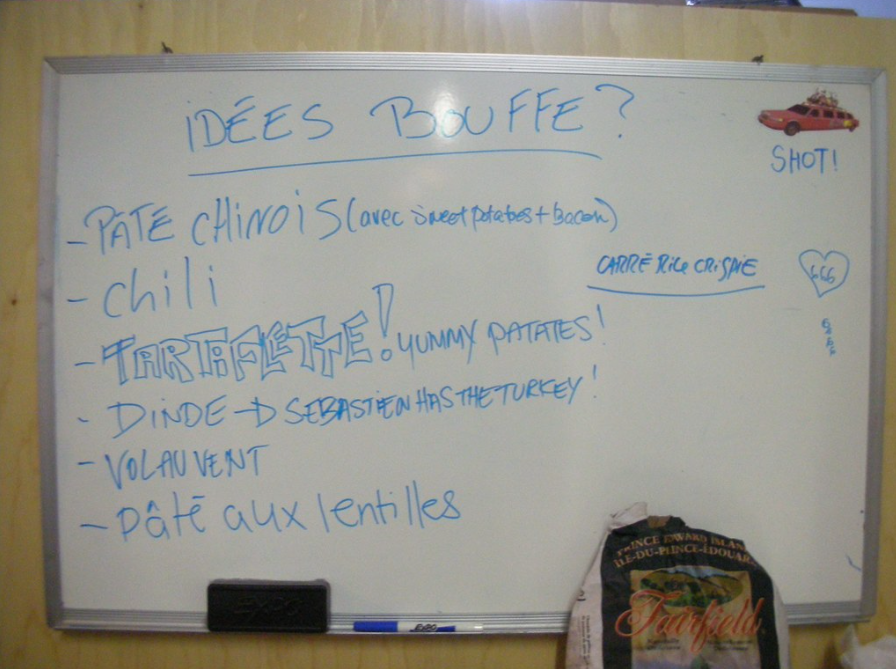 IDÉES BOUFFE?
SHOT!
- PÂTÉ CHINOIS (avec sweet potatoes + Bacon)
CARRÉ RICE CRISPIE
666
- chili
- TARTIFLETTE! YUMMY PATATES!
- DINDE → SEBASTIEN HAS THE TURKEY!
- VOLAUVENT
- pâté aux lentilles
EXPO
EXPO
PRINCE EDWARD ISLAND
ÎLE-DU-PRINCE-ÉDOUARD
Fairfield